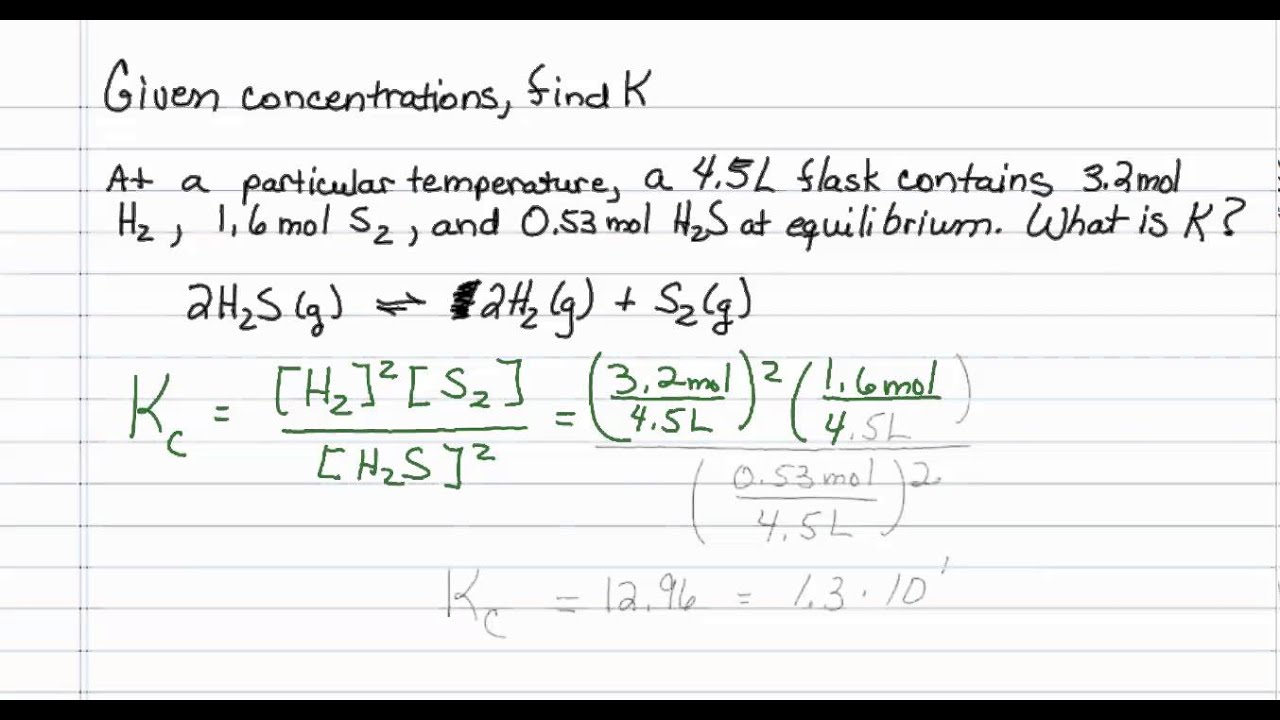 Given concentrations, find K
At a particular temperature, a 4.5L flask contains 3.2mol
H₂, 1.6 mol S₂, and 0.53 mol H₂S at equilibrium. What is K?
2H₂S(g) ⇌ 2H₂(g) + S₂(g)
K_c = [H₂]²[S₂] / [H₂S]² = (3.2mol / 4.5L)² (1.6mol / 4.5L) / (0.53mol / 4.5L)²
K_c = 12.96 = 1.3 · 10¹